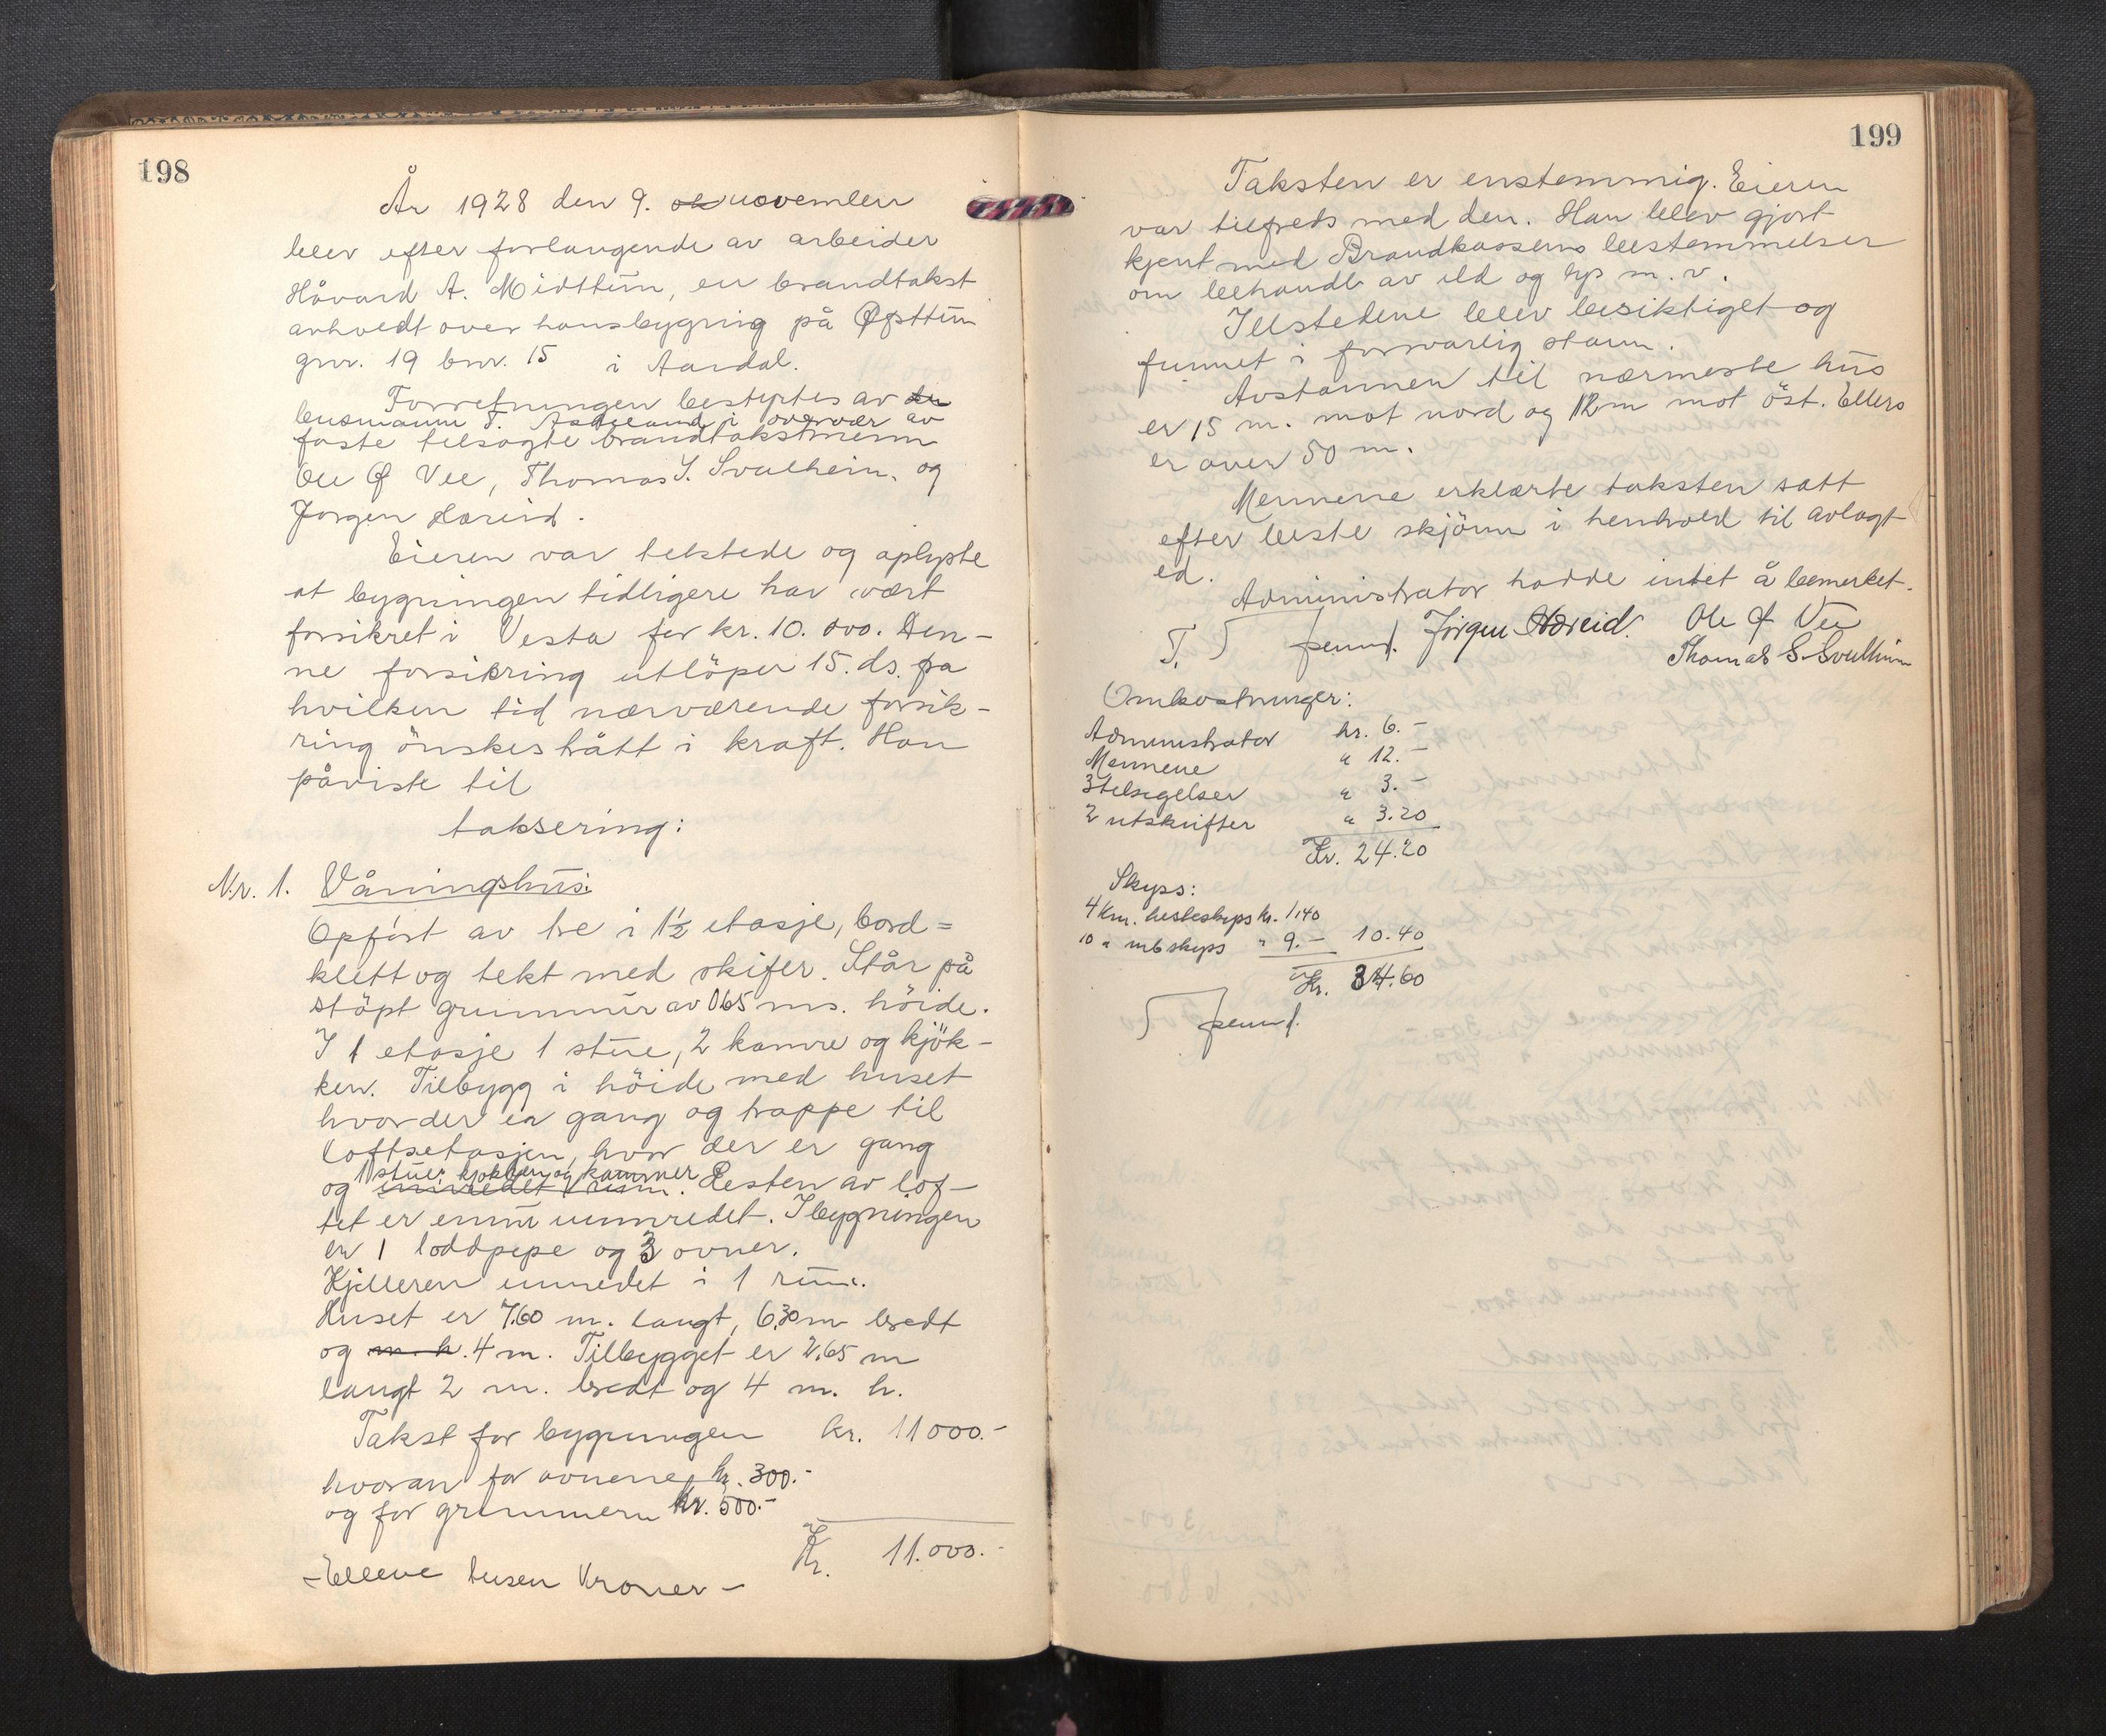 198
År 1928 den 9. ok november
blev efter forlangende av arbeider
Håvard A. Midttun, en brandtakst
avholdt over husbygning på Øfsttun
gnr. 19 bnr. 15 i Aardal.
Forretningen bestyrtes av den
lensmann T. i overvær av
faste tilsagte brandtakstmenn
Ole Ø Vee, Thomas S. Svalheim, og
Jørgen Hæreid.
Eieren var tilstede og oplyste
at bygningen tidligere har vært
forsikret i Vesta for kr. 10.000. Den-
ne forsikring utlöper 15. ds. fra
hvilken tid nærværende forsik-
ring önskes trått i kraft. Han
påviste til
taksering:
Nr. 1. Våningshus:
Opfört av tre i 1½ etasje, bord=
klett og tekt med skifer. Står på
stöpt grunnmur av 0,65 ms. höide.
I 1 etasje 1 stue, 2 kamre og kjök-
ken. Tilbygg i höide med huset
hvor der er gang og trappe til
loftsetasjen, hvor der er gang
1 stue, kjøkken og kammer
og innredet 1 rum. Resten av lof-
tet er ennu uinnredet. I bygningen
er 1 loddpipe og 3 ovner.
Kjelleren innredet i 1 rum.
Huset er 7.60 m. langt, 6,30 m bredt
og m. h. 4 m. Tilbygget er 2,65 m
langt 2 m. bredt og 4 m. h.
Takst for bygningen kr. 11000.-
hvorav for ovnene kr. 300.-
og for grunnmuren kr. 500.-
Kr. 11.000.-
- Elleve tusen Kroner -
199
Taksten er enstemmig. Eieren
var tilfreds med den. Han blev gjort
kjent med Brandkassens bestemmelser
om behandl av ild og lys m. v.
Illstedene blev besiktiget og
funnet i forsvarlig stann.
Avstannen til nærmeste hus
er 15 m. mot nord og 12 m mot öst. Ellers
er over 50 m.
Mennene erklærte taksten satt
efter beste skjönn i henhold til avlagt
ed.
Administrator hadde intet å bemerket.
T. Jørgen Hæreid. Ole Ø Vee
Thomas S. Svalheim
Omkostninger:
Administrator kr. 6.-
Mennene " 12.-
3 tilsigelser " 3.-
2 utskrifter " 3.20
Kr. 24.20
Skyss:
4 km. hesteskyss kr. 1.40
10 " mb skyss " 9.- 10.40
Kr. 34.60